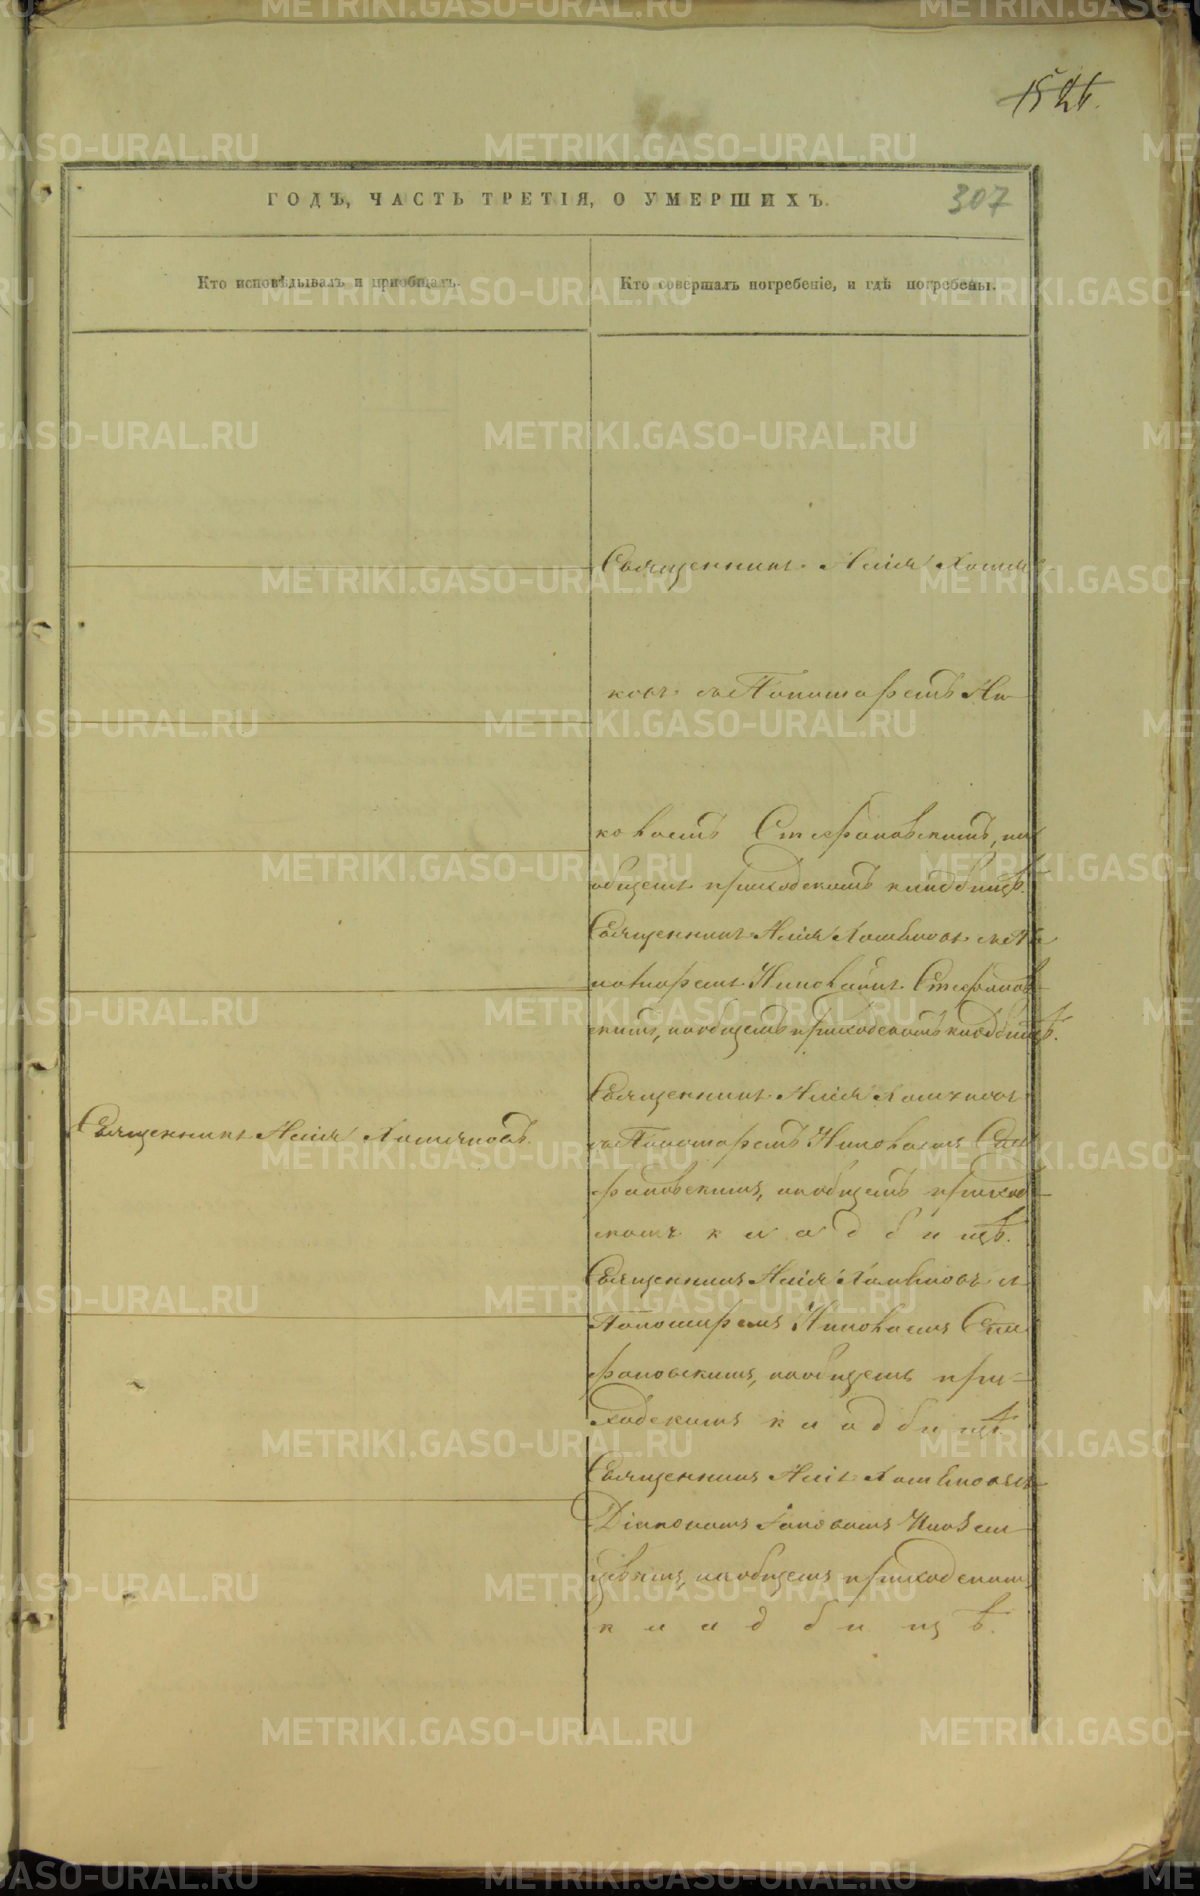 152.
307
ГОДЪ, ЧАСТЬ ТРЕТІЯ, О УМЕРШИХЪ.
Кто исповѣдывалъ и пріобщалъ.
Кто совершалъ погребеніе, и гдѣ погребены.
Священникъ Илія Хомя
ковъ съ Пономаремъ Ни
колаемъ Стефановскимъ, на
общемъ приходскомъ кладбищѣ.
Священникъ Илія Хомяковъ съ По
номаремъ Николаемъ Стефанов
скимъ, на общемъ приходскомъ кладбищѣ.
Священникъ Илія Хомяковъ
Священникъ Илія Хомяковъ.
съ Пономаремъ Николаемъ Сте
фановскимъ, на общемъ приход
скомъ кладбищѣ.
Священникъ Илія Хомяковъ съ
Пономаремъ Николаемъ Сте
фановскимъ, на общемъ при=
ходскомъ кладбищѣ.
Священникъ Илія Хомяковъ съ
Діакономъ
на общемъ приходскомъ
кладбищѣ.
METRIKI.GASO-URAL.RU